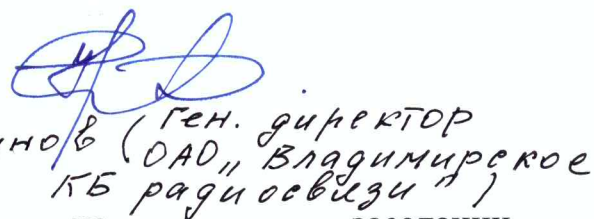 нов (Ген. директор
ОАО „Владимирское
КБ радиосвязи")